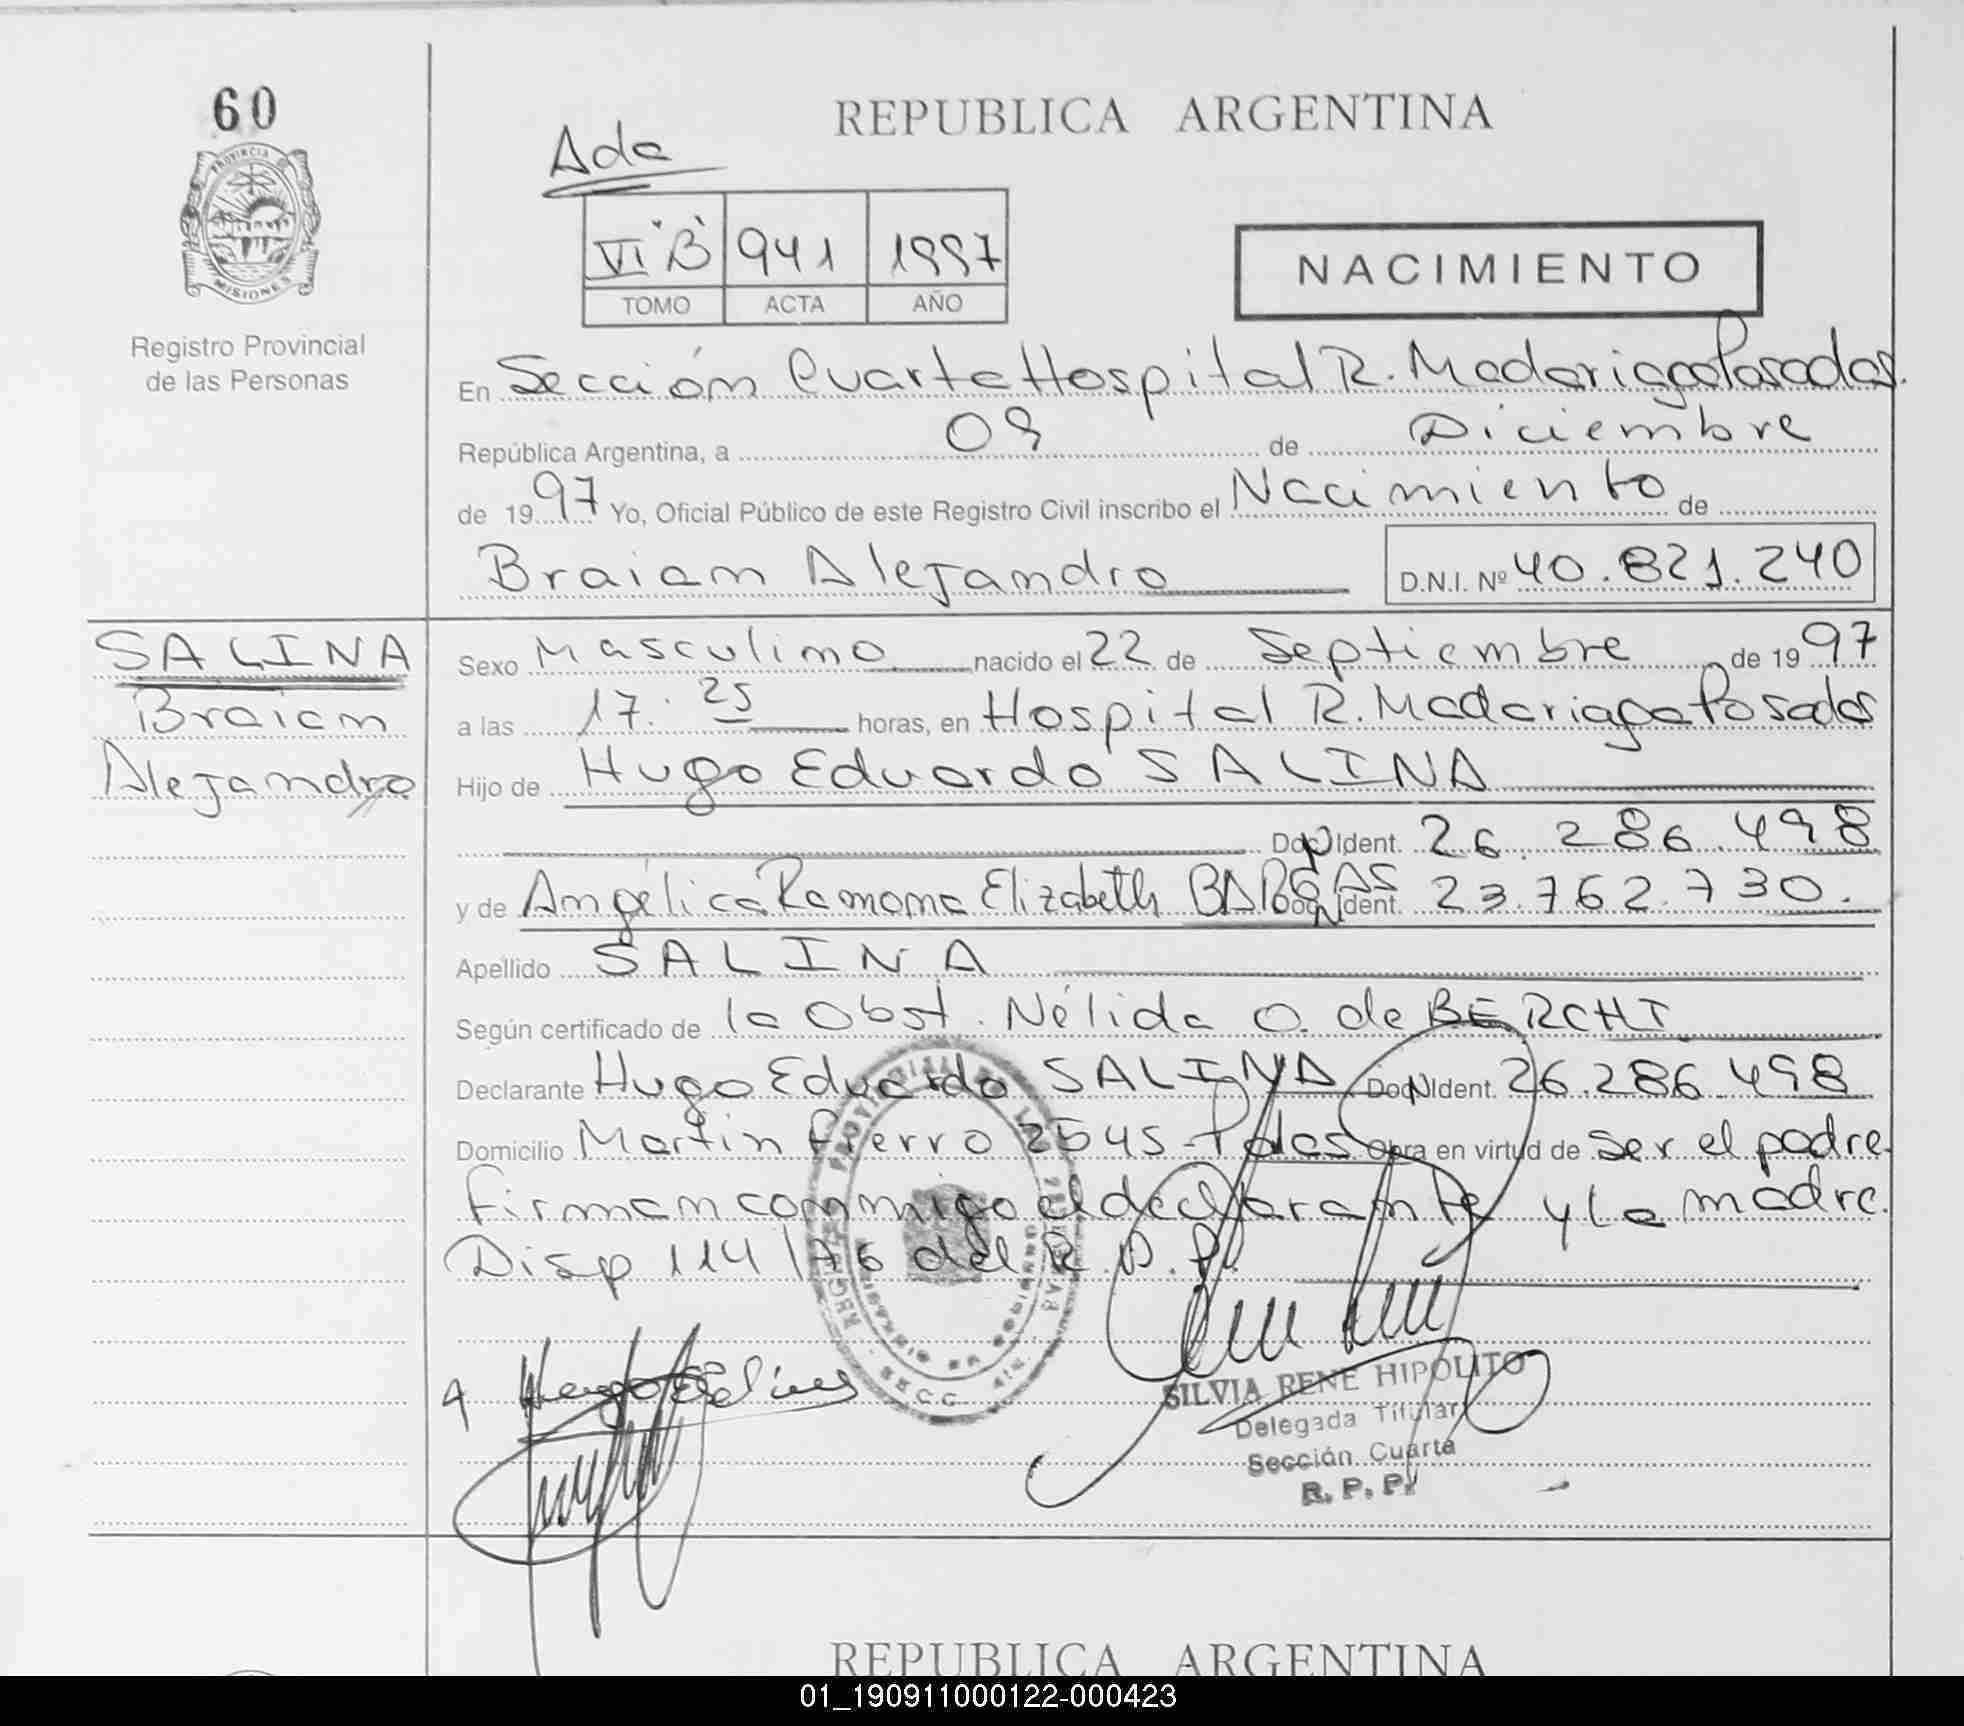 60
REPUBLICA ARGENTINA
Ada
VI "B" 941 1997
TOMO ACTA AÑO
NACIMIENTO
PROVINCIA DE
MISIONES
Registro Provincial
de las Personas
En Sección Cuarta Hospital R. Madariaga Posadas.
República Argentina, a 09 de Diciembre
de 1997 Yo, Oficial Público de este Registro Civil inscribo el Nacimiento de
Braian Alejandro D.N.I. Nº 40.821.240
SALINA
Braian
Alejandro
Sexo Masculino nacido el 22 de Septiembre de 1997
a las 17:25 horas, en Hospital R. Madariaga Posadas
Hijo de Hugo Eduardo SALINA
Doc. Ident. 26.286.498
y de Angélica Ramona Elizabeth BARGAS Doc. Ident. 23.762.730.
Apellido SALINA
Según certificado de la Obst. Nélida O. de BERCHT
Declarante Hugo Eduardo SALINA Doc. Ident. 26.286.498
Domicilio Martin Fierro 2545 - Pdas Obra en virtud de ser el padre.
Firman conmigo el declarante y la madre.
Disp 114/76 del R.P.P.
Hugo E Salina
SILVIA RENE HIPOLITO
Delegada Titular
Sección Cuarta
R. P. P.
REPUBLICA ARGENTINA
01_190911000122-000423